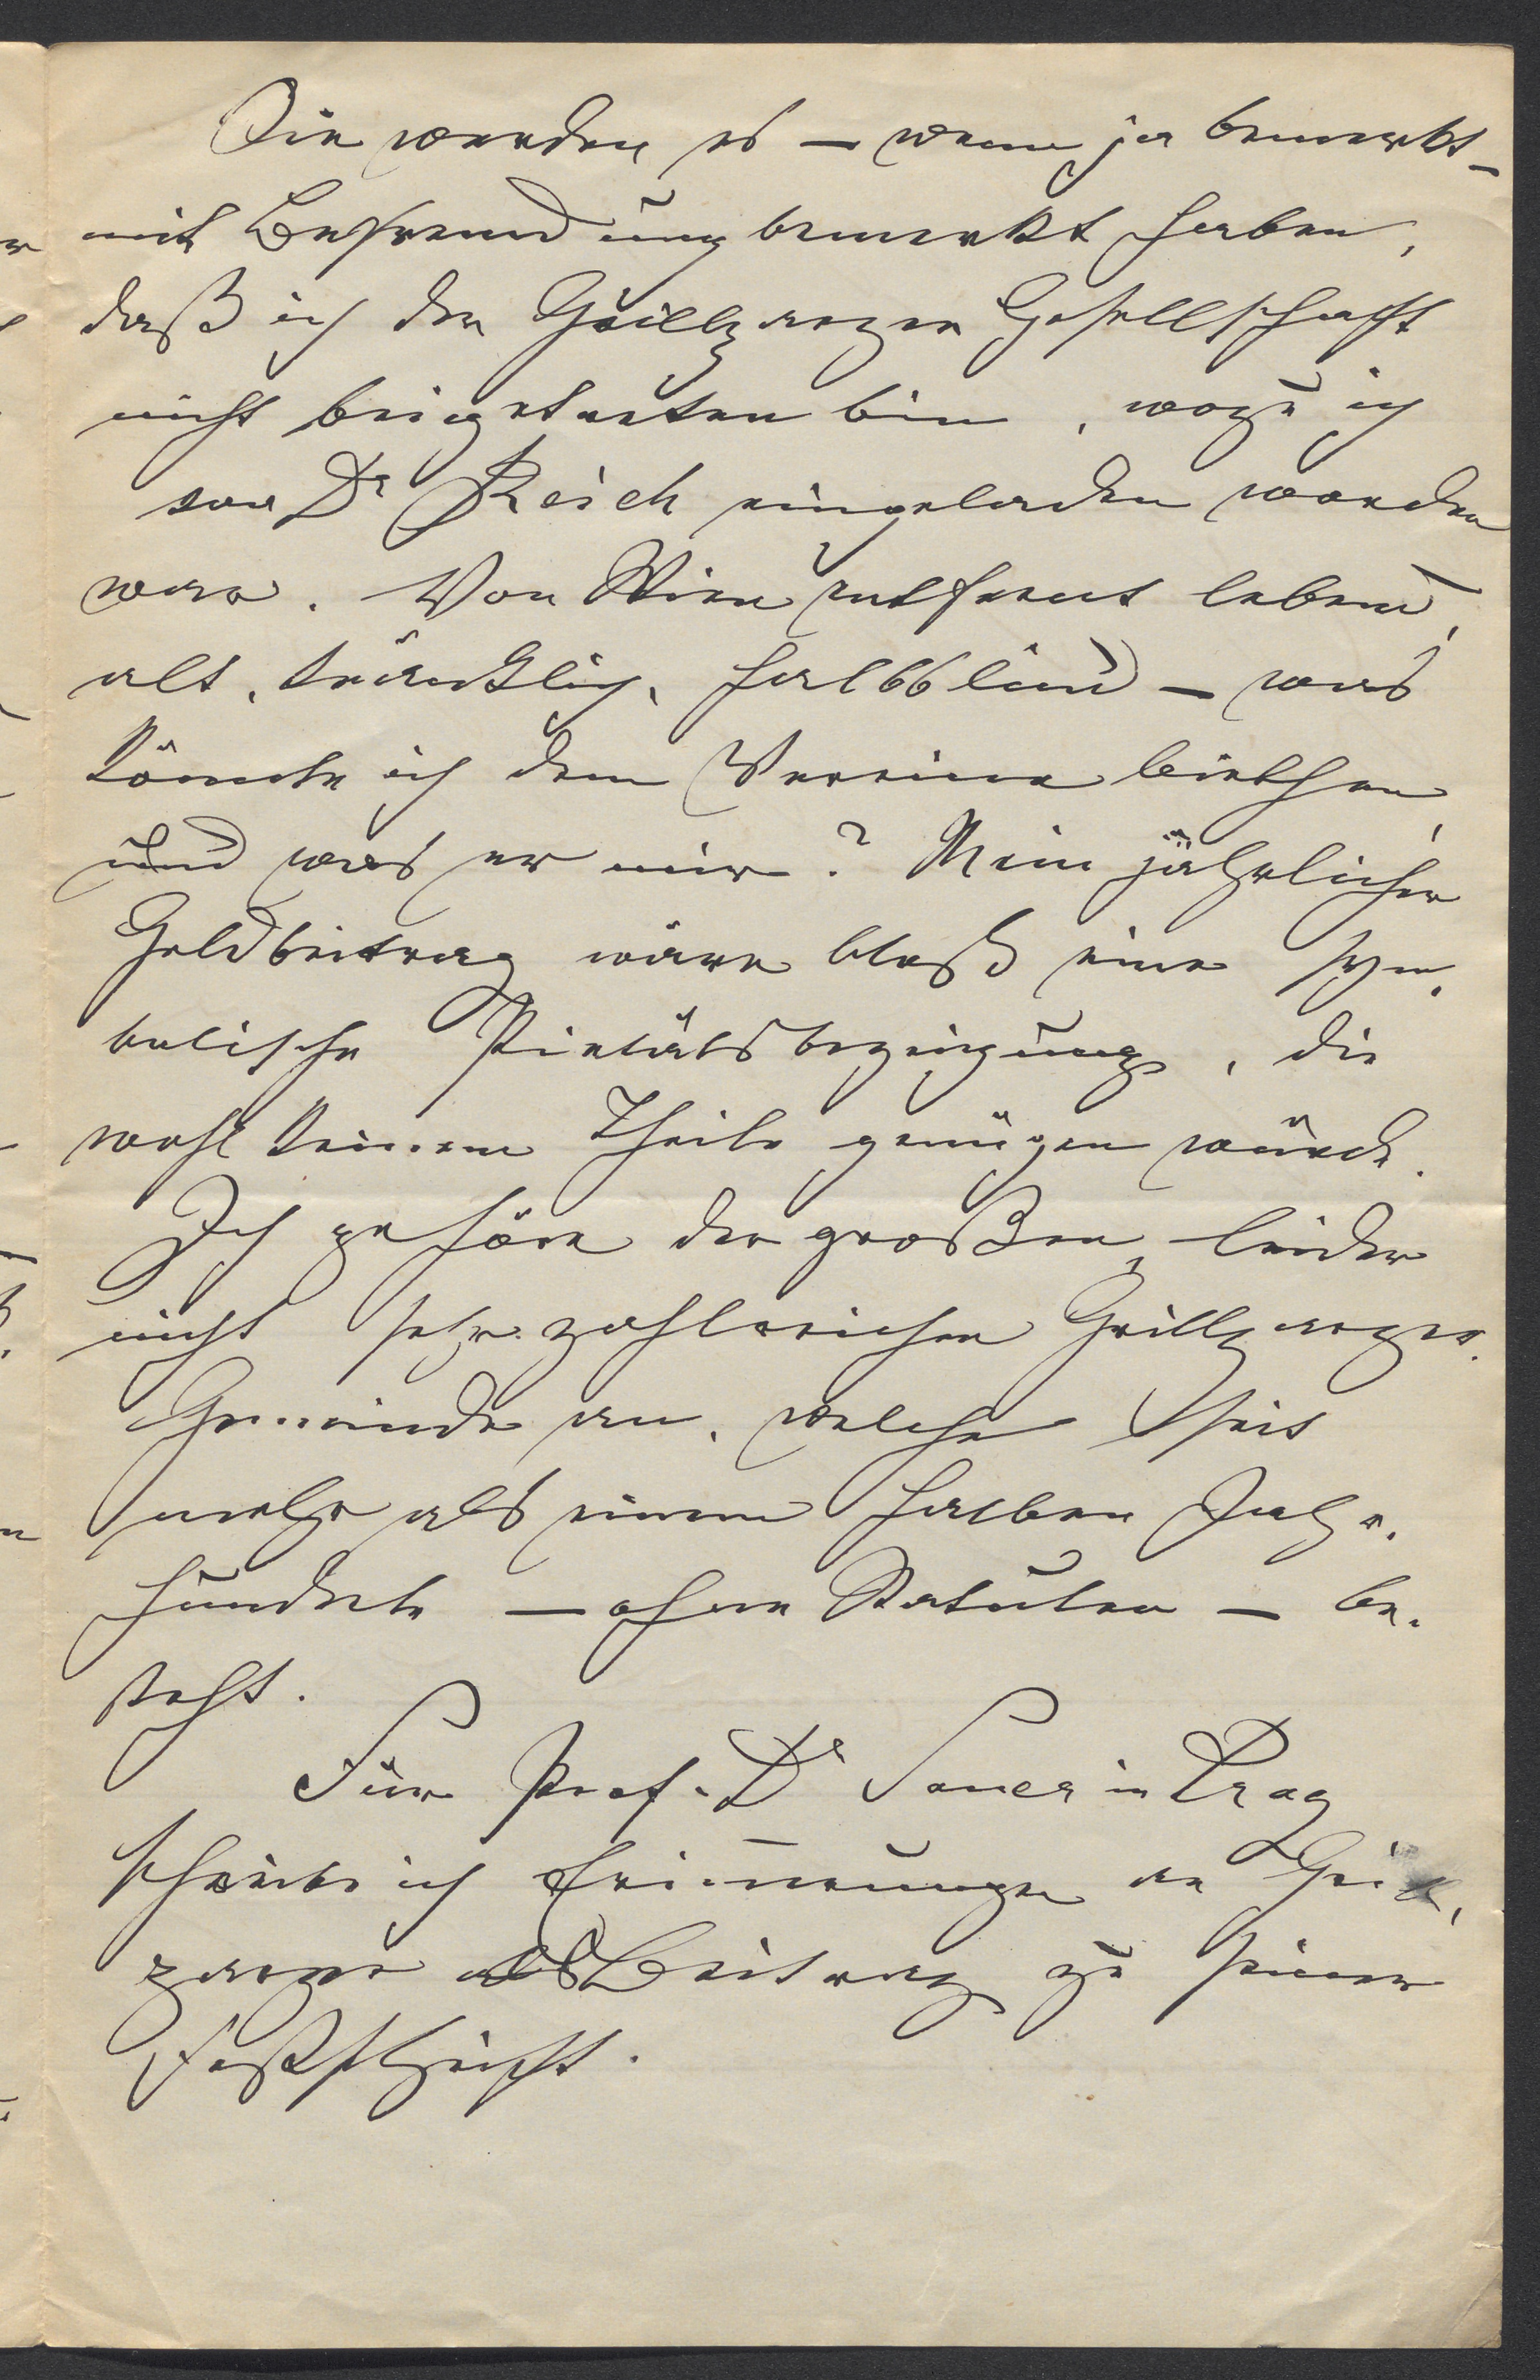 Sie werden es – wenn ja bemerkt –
mit Befremdung bemerkt haben,
daß ich der Grillparzer Gesellschaft
nicht beigetreten bin, wozu ich
von Dr Reich eingeladen worden
war. Von Wien entfernt lebend,
alt, kränklich, halbblind – was
könnte ich dem Vereine biethen
und was er mir? Mein jährlicher
Geldbeitrag wäre bloß eine sym-
bolische Pietätsbezeigung, die
wohl keinem Theile genügen würde.
Ich gehöre der großen, leider
nicht sehr zahlreichen Grillparzer-
Gemeinde an, welche seit
mehr als einem halben Jahr-
hunderte – ohne Statuten – be-
steht.
Für Prof. Dr Sauer in Prag
schreibe ich Erinnerungen an Grill-
parzer als Beitrag zu seiner
Festschrift.